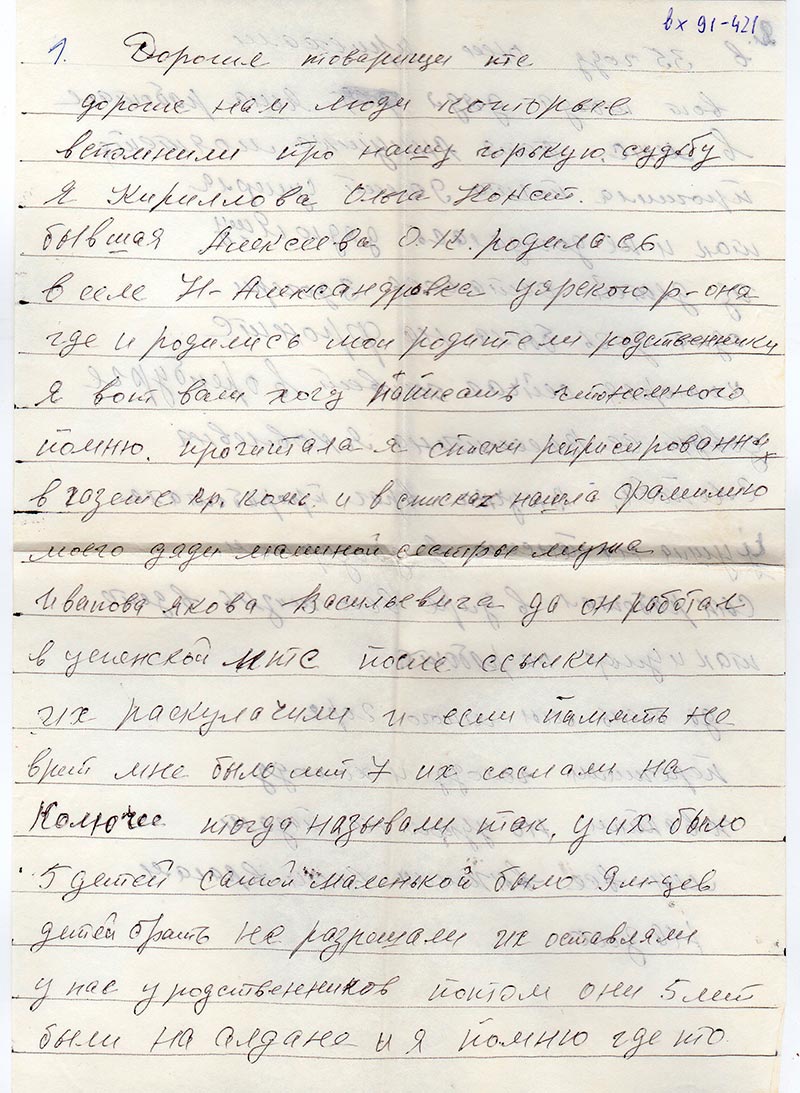 вх 91-421
1. Дорогие товарищи те
дорогие нам люди которые
вспомнили про нашу горькую судьбу
Я Кириллова Ольга Конст.
бывшая Алексеева О.К. родилась
в селе Н-Александровка уярского р-она
где и родились мои родители родственники
Я вот вам хочу пописать что немного
помню. прочитала я списки реприсированных
в газете кр. ком. и в списках нашла фамилию
моего дяди маминой сестры мужа
Иванова Якова Васильевича да он работал
в успенской мтс после ссылки
их раскулачили и если память не
врет мне было лет 7 их сослали на
Колючее тогда называли так, у их было
5 детей самой маленькой было 9 м-цев
детей брать не разрошали их оставляли
у нас у родственников потом они 5 лет
были на алдане и я помню где то